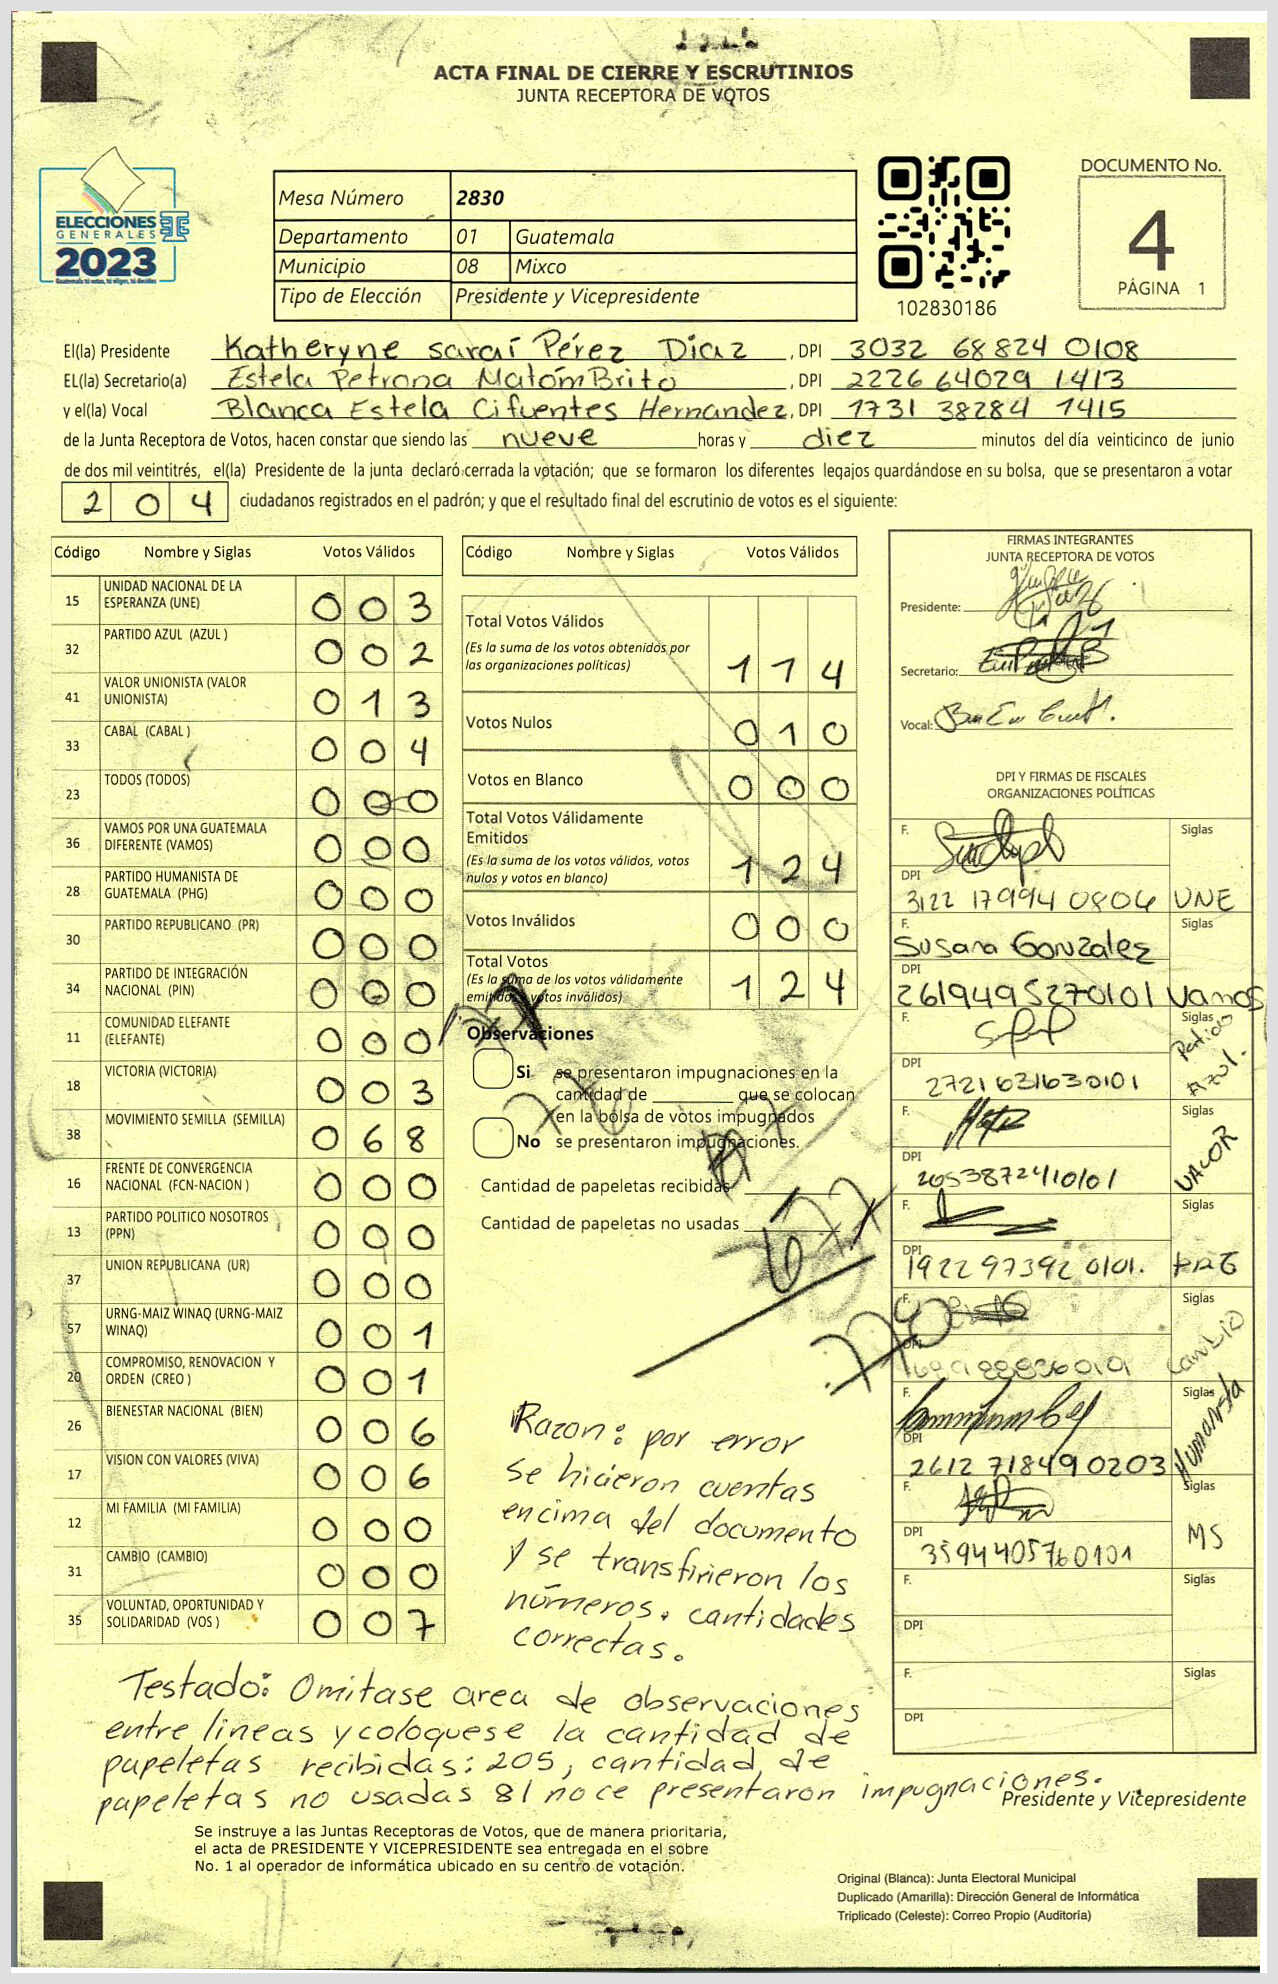 ACTA FINAL DE CIERRE Y ESCRUTINIOS
JUNTA RECEPTORA DE VOTOS
ELECCIONES
GENERALES
2023
Mesa Número 2830
Departamento 01 Guatemala
Municipio 08 Mixco
Tipo de Elección Presidente y Vicepresidente
102830186
DOCUMENTO No.
4
PÁGINA 1
El(la) Presidente Katheryne saraí Pérez Díaz, DPI 3032 68824 0108
EL(la) Secretario(a) Estela Petrona Matóm Brito, DPI 2226 64029 1413
y el(la) Vocal Blanca Estela Cifuentes Hernandez, DPI 1731 38284 1415
de la Junta Receptora de Votos, hacen constar que siendo las nueve horas y diez minutos del día veinticinco de junio
de dos mil veintitrés, el(la) Presidente de la junta declaró cerrada la votación; que se formaron los diferentes legajos guardándose en su bolsa, que se presentaron a votar
204 ciudadanos registrados en el padrón; y que el resultado final del escrutinio de votos es el siguiente:
Código Nombre y Siglas Votos Válidos
15 UNIDAD NACIONAL DE LA
ESPERANZA (UNE) 003
32 PARTIDO AZUL (AZUL ) 002
41 VALOR UNIONISTA (VALOR
UNIONISTA) 013
33 CABAL (CABAL ) 004
23 TODOS (TODOS) 000
36 VAMOS POR UNA GUATEMALA
DIFERENTE (VAMOS) 000
28 PARTIDO HUMANISTA DE
GUATEMALA (PHG) 000
30 PARTIDO REPUBLICANO (PR) 000
34 PARTIDO DE INTEGRACIÓN
NACIONAL (PIN) 000
11 COMUNIDAD ELEFANTE
(ELEFANTE) 000
18 VICTORIA (VICTORIA) 003
38 MOVIMIENTO SEMILLA (SEMILLA) 068
16 FRENTE DE CONVERGENCIA
NACIONAL (FCN-NACION ) 000
13 PARTIDO POLITICO NOSOTROS
(PPN) 000
37 UNION REPUBLICANA (UR) 000
57 URNG-MAIZ WINAQ (URNG-MAIZ
WINAQ) 001
20 COMPROMISO, RENOVACION Y
ORDEN (CREO ) 001
26 BIENESTAR NACIONAL (BIEN) 006
17 VISION CON VALORES (VIVA) 006
12 MI FAMILIA (MI FAMILIA) 000
31 CAMBIO (CAMBIO) 000
35 VOLUNTAD, OPORTUNIDAD Y
SOLIDARIDAD (VOS ) 007
Código Nombre y Siglas Votos Válidos
Total Votos Válidos
(Es la suma de los votos obtenidos por
las organizaciones políticas) 114
Votos Nulos 010
Votos en Blanco 000
Total Votos Válidamente
Emitidos
(Es la suma de los votos válidos, votos
nulos y votos en blanco) 124
Votos Inválidos 000
Total Votos
(Es la suma de los votos válidamente
emitidos y votos inválidos) 124
Observaciones
Si se presentaron impugnaciones en la
cantidad de que se colocan
en la bolsa de votos impugnados
No se presentaron impugnaciones.
Cantidad de papeletas recibidas
Cantidad de papeletas no usadas
Razon: por error
se hicieron cuentas
encima del documento
y se transfirieron los
números. cantidades
correctas.
FIRMAS INTEGRANTES
JUNTA RECEPTORA DE VOTOS
Presidente:
Secretario:
Vocal:
DPI Y FIRMAS DE FISCALES
ORGANIZACIONES POLÍTICAS
F. Siglas
DPI
3122 17994 0804 UNE
F. Siglas
Susana Gonzalez
DPI
2619495270101 Vamos
F. Siglas
Partido
Azul.
DPI
2721631630101
F. Siglas
DPI
2053872410101 VALOR
F. Siglas
DPI
1922 97392 0101.
F. Siglas
DPI
Cambio
F. Siglas
DPI
2612 71849 0203 Humanista
F. Siglas
DPI
3594405760101 MS
F. Siglas
DPI
F. Siglas
DPI
Testado: Omitase area de observaciones
entre lineas y coloquese la cantidad de
papeletas recibidas: 205, cantidad de
papeletas no usadas 81 no ce presentaron impugnaciones.
Presidente y Vicepresidente
Se instruye a las Juntas Receptoras de Votos, que de manera prioritaria,
el acta de PRESIDENTE Y VICEPRESIDENTE sea entregada en el sobre
No. 1 al operador de informática ubicado en su centro de votación.
Original (Blanca): Junta Electoral Municipal
Duplicado (Amarilla): Dirección General de Informática
Triplicado (Celeste): Correo Propio (Auditoría)